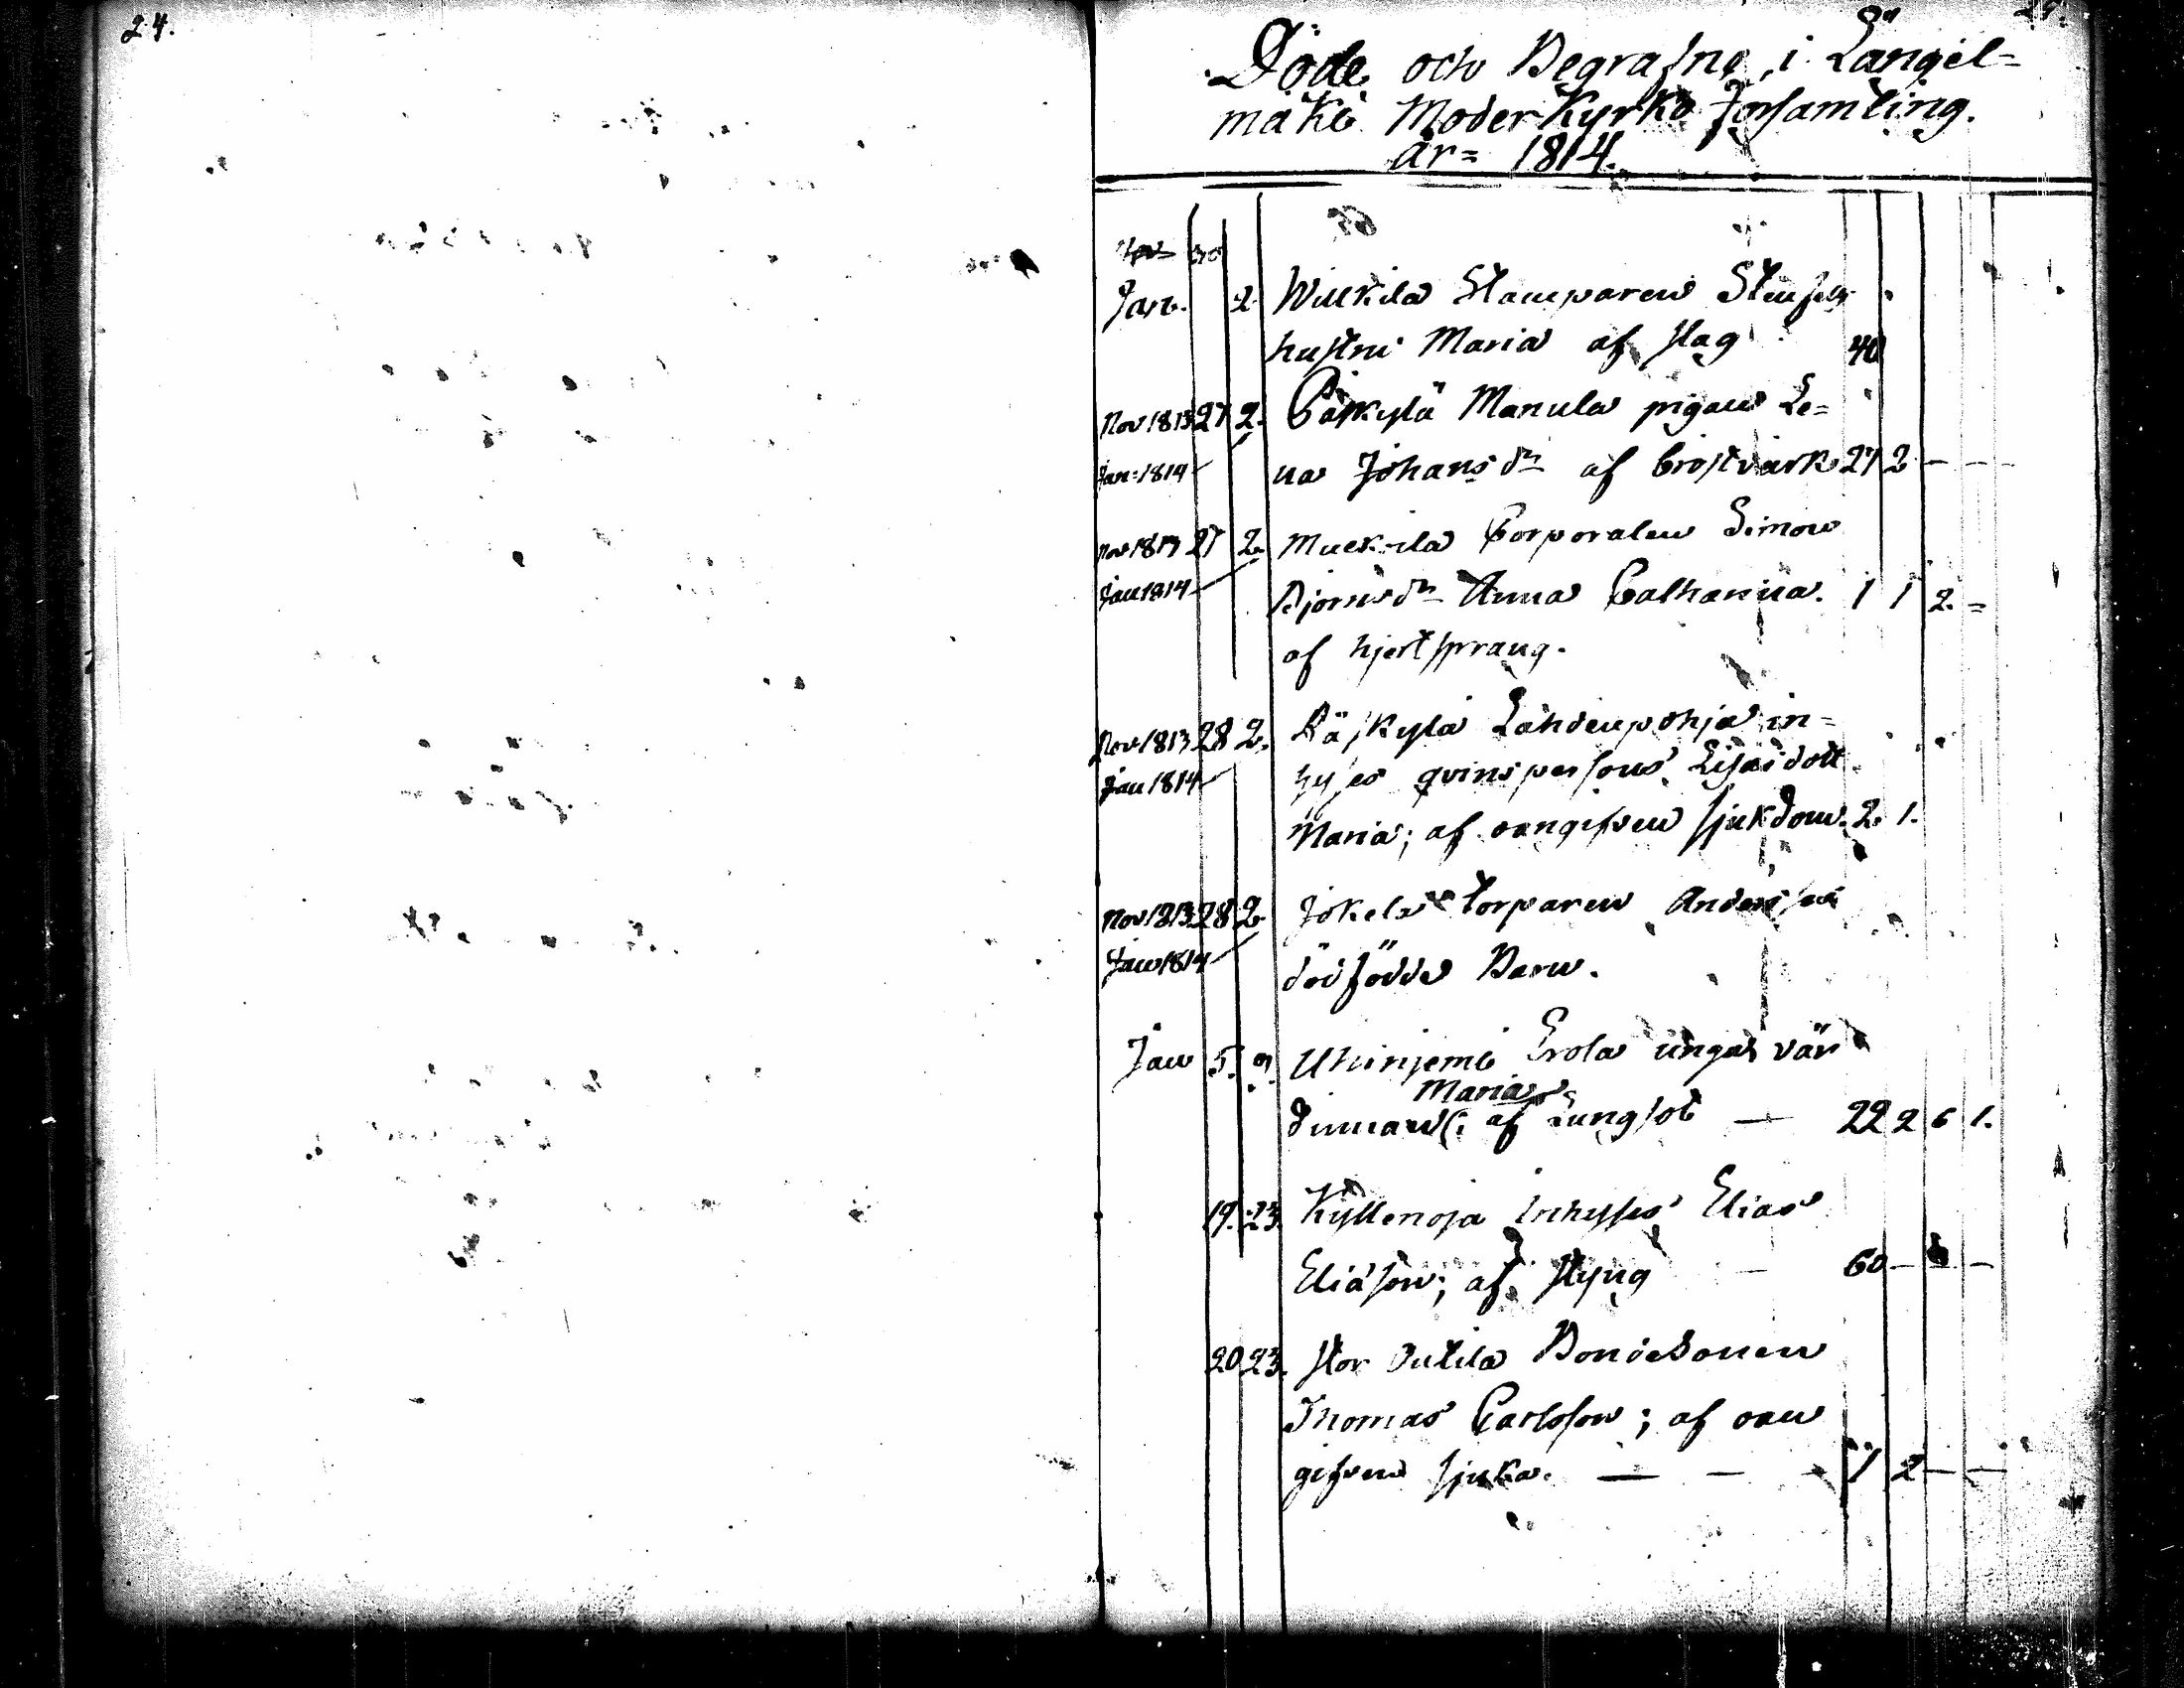 24.
25.
Döde och Begrafne i Längel=
mäki Moderkyrko Församling.
år= 1814.
Jan. 2 Stamparens
hustru Maria af slag 40
Nov 1813 27 2. Päskylä Manula pigan Le=
Jan: 1814 na Johansdr af bröstvärk 27 2 - - -
Nov 1813 27 2. Muckila Corporalen Simon
Jan 1814 Björnsdr Anna Catharina. 1 1 2. =
af hjertsprång.
Nov 1813 28 2. Päskylä Lahdenpohja in=
Jan 1814 hyses qvinspersons dott
Maria; af oangifven sjukdom. 2. 1.
Nov 1813 28 2. Jokela torparen Anders
Jan 1814 dödfödde Barn.
Jan 5. 9. Uhiniemi Erola unga vär
Maria
dinnan (: af Lungsot — 22 2 6 1.
19. 23. Kyllenoja Inhyses Elias
Eliasson; af styng — 60 - -
20 23. stor Outila Bondesonen
Thomas Carlsson; af oan
gifven sjuka. — - - 7 2 - -